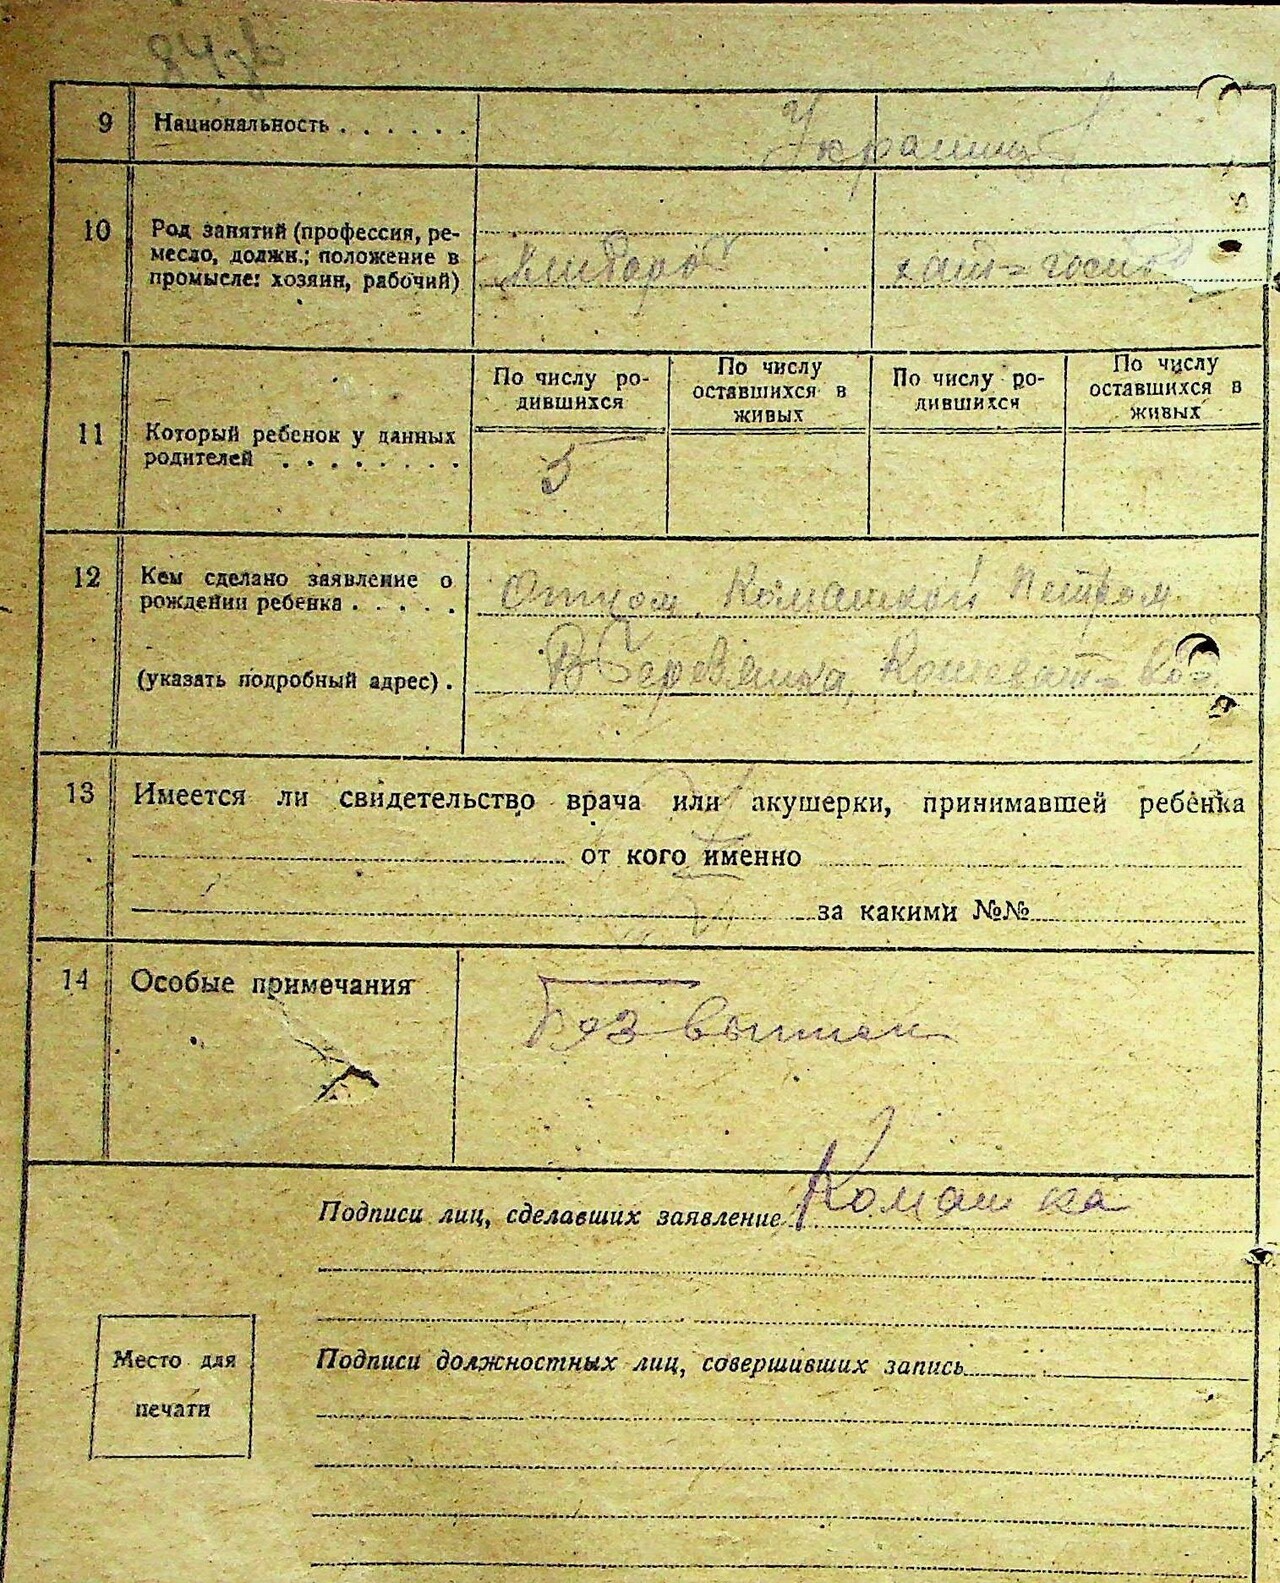 84
9 Национальность . . . . . .
Украинц
10 Род занятий (профессия, ре-
месло, должн.; положение в
промысле: хозяин, рабочий)
11 Который ребенок у данных
родителей . . . . . . . .
По числу ро-
дившихся
По числу
оставшихся в
живых
По числу ро-
дившихся
По числу
оставшихся в
живых
5
12 Кем сделано заявление о
рождении ребенка . . . . .
(указать подробный адрес) .
Отцом Комашкой Петром
13 Имеется ли свидетельство врача или акушерки, принимавшей ребенка
от кого именно
за какими №№
14 Особые примечания
Без
Подписи лиц, сделавших заявление Комашка
Место для
печати
Подписи должностных лиц, совершивших запись